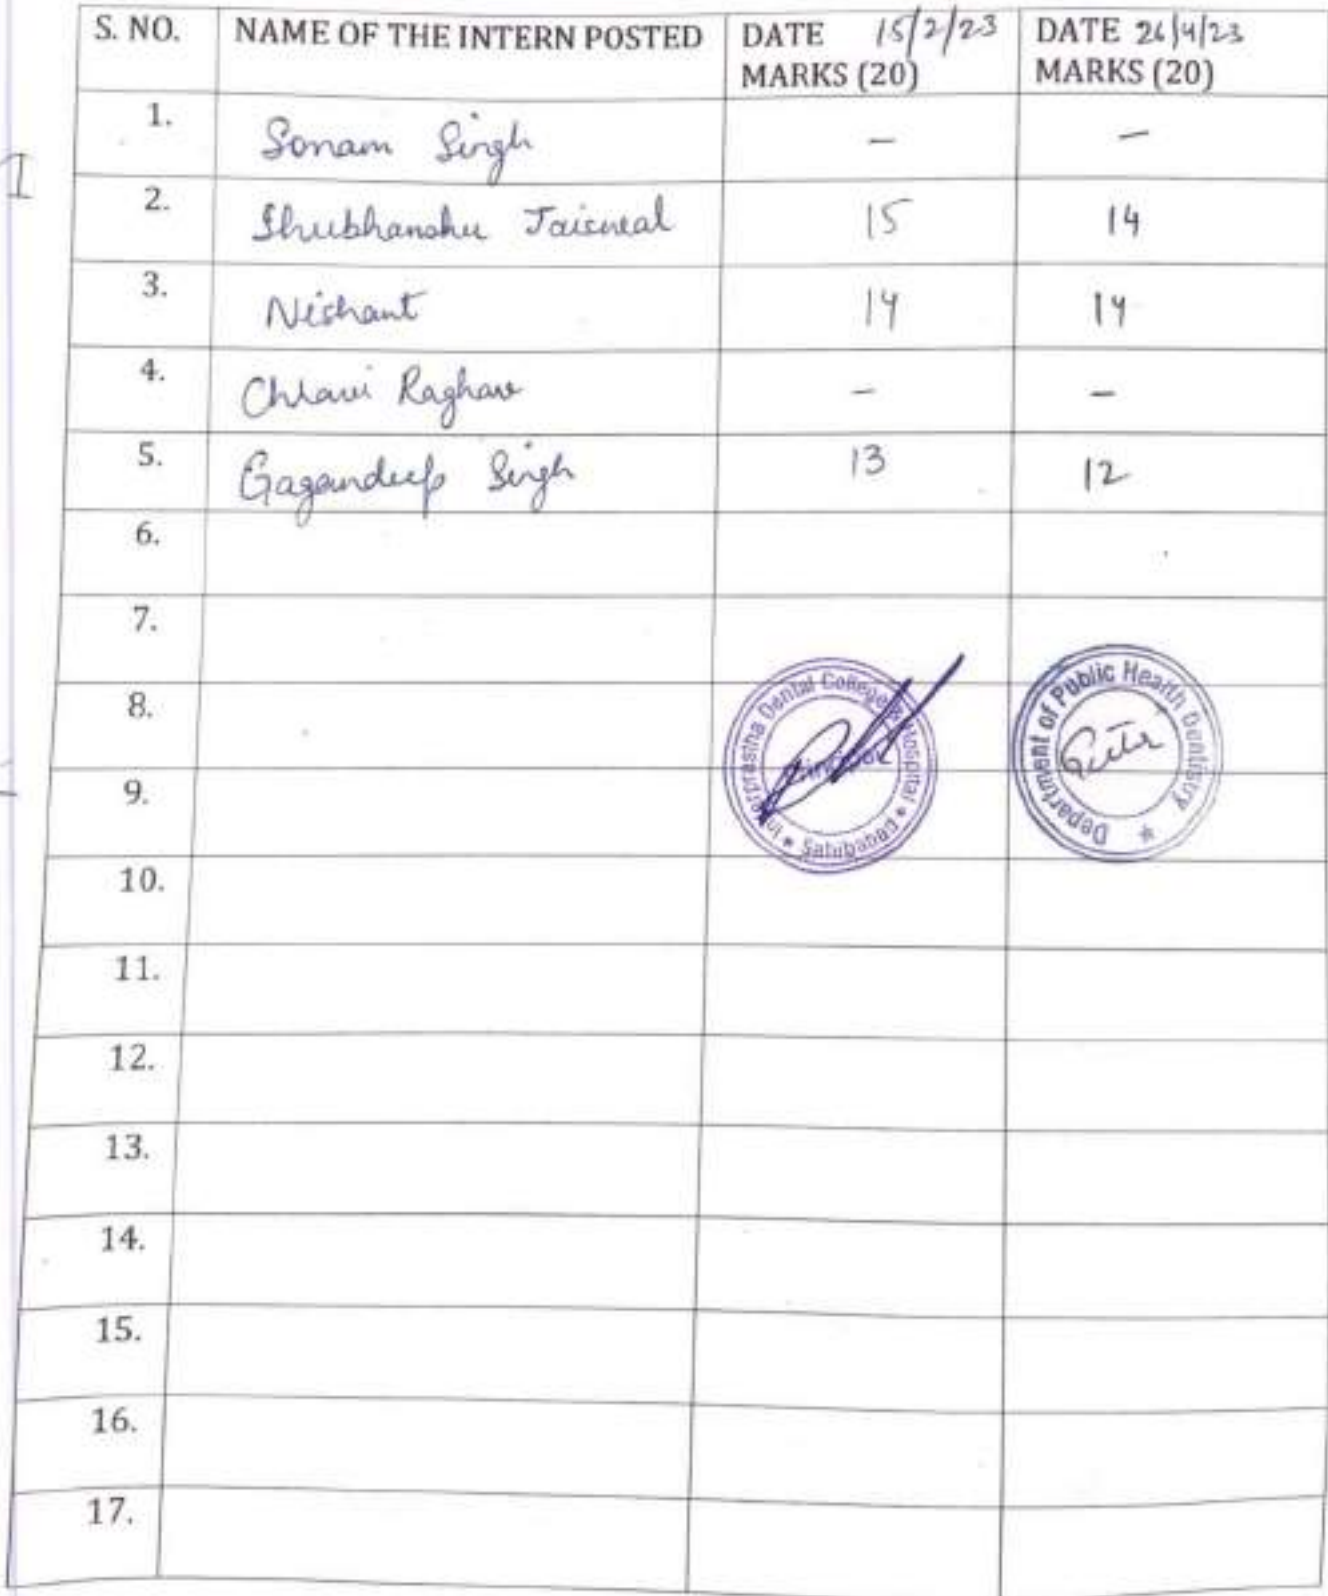 S. NO. NAME OF THE INTERN POSTED DATE 15/2/23 DATE 26/4/23
MARKS (20) MARKS (20)
1. Sonam Singh – –
2. Shubhanshu Jaiswal 15 14
3. Nishant 14 14
4. Chhavi Raghav – –
5. Gagandeep Singh 13 12
6.
7.
8.
9.
10.
11.
12.
13.
14.
15.
16.
17.
Inderprastha Dental College & Hospital
Principal
* Sahibabad *
Department of Public Health Dentistry *